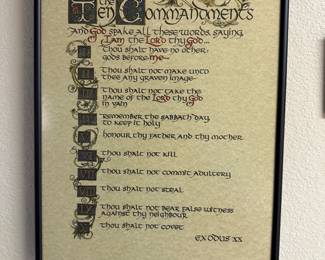 the
Ten Commandments
And God spake all these words, saying,
I am the Lord thy God...
Thou shalt have no other
gods before me
Thou shalt not make unto
thee any graven image
Thou shalt not take the
name of the Lord thy God
in vain
Remember the sabbath day,
to keep it holy
Honour thy father and thy mother
Thou shalt not kill
Thou shalt not commit adultery
Thou shalt not steal
Thou shalt not bear false witness
against thy neighbour
Thou shalt not covet
Exodus XX